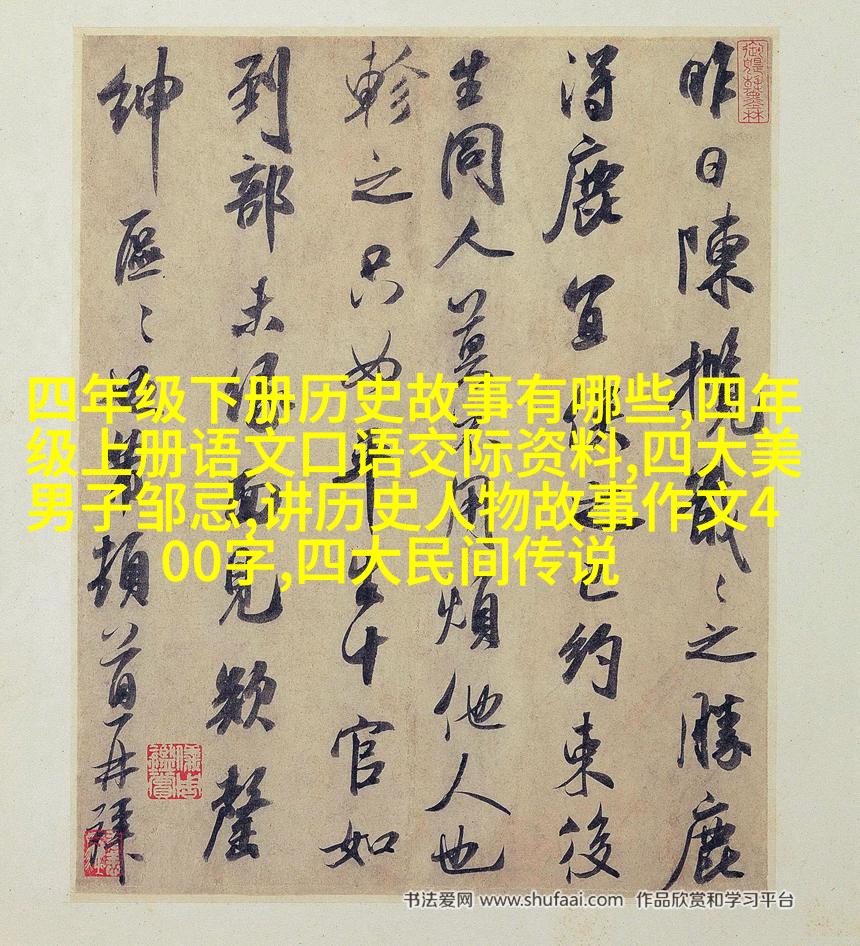 昨日陳攬戢〻之勝鹿
得鹿宜之已約束後
生同人莫不用煩他人也
軫之只如平生十官如
到部未得面見欵罄
紳區〻頓首再拜
四年级下册历史故事有哪些,四年
级上册语文口语交际资料,四大美
男子邹忌,讲历史人物故事作文4
00字,四大民间传说
书法爱网 www.shufaai.com 作品欣赏和学习平台